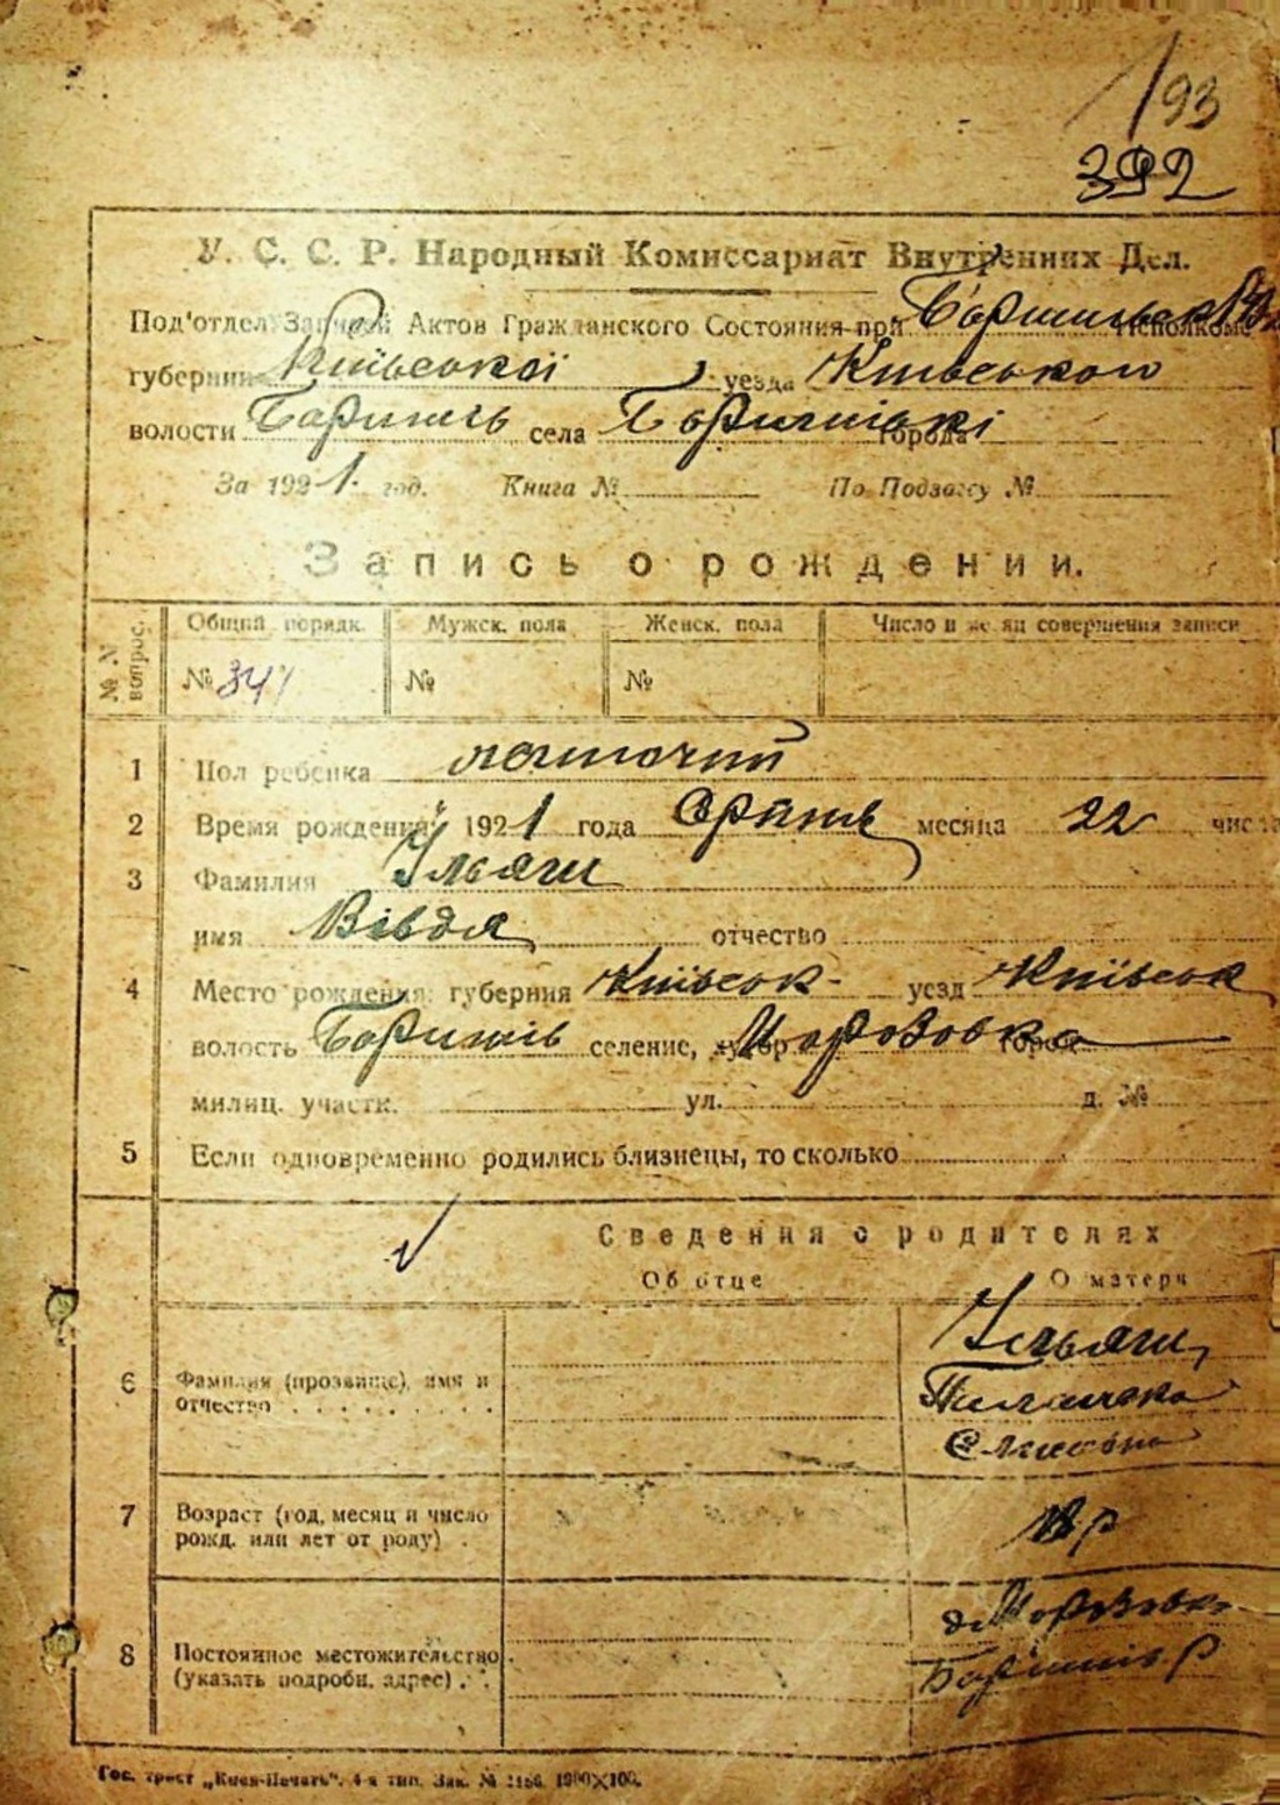 193
392
У. С. С. Р. Народный Комиссариат Внутренних Дел.
Под'отдел Записей Актов Гражданского Состояния при Исполкоме
губернии Київської уезда Київського
волости Баришів села Баришівкі города
За 1921. год. Книга № По Подзагсу №
Запись о рождении.
№ № вопрос. Общий порядк. Мужск. пола Женск. пола Число и месяц совершения записи
№ 341 № №
1 Пол ребенка жиночий
2 Время рождения 1921 года Серпня месяца 22 числа
3 Фамилия Ильяш
имя Вівдя отчество
4 Место рождения: губерния Київськ уезд Київськ
волость Баришів селение, хутор Морозовка город
милиц. участк. ул. д. №
5 Если одновременно родились близнецы, то сколько
Сведения о родителях
Об отце О матери
6 Фамилия (прозвище), имя и отчество Ильяш
7 Возраст (год, месяц и число рожд. или лет от роду)
8 Постоянное местожительство (указать подробн. адрес) Морозовка
Баришів. р
Гос. трест „Киев-Печать“, 4-я тип. Зак. №